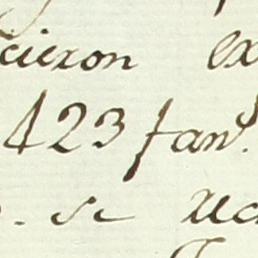 cieron ex
423 fan.
se